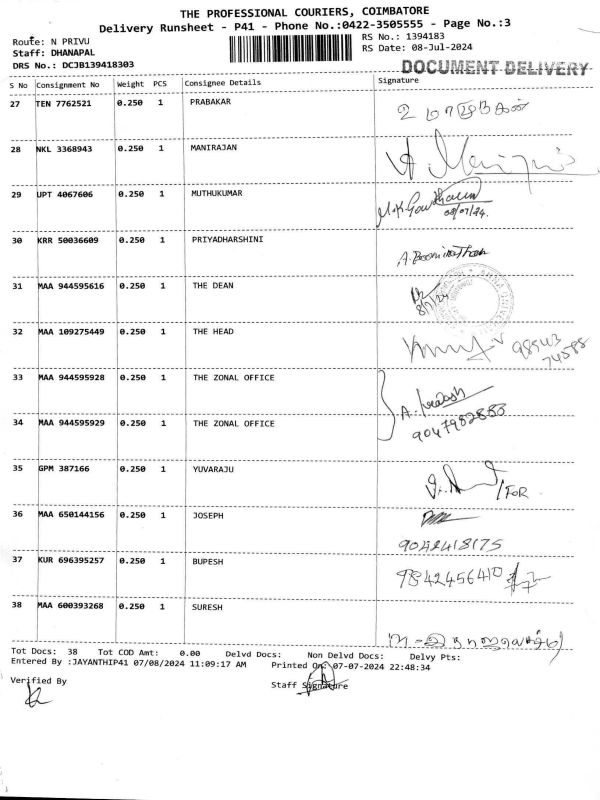 THE PROFESSIONAL COURIERS, COIMBATORE
Delivery Runsheet - P41 - Phone No.:0422-3505555 - Page No.:3
Route: N PRIVU
RS No.: 1394183
Staff: DHANAPAL
RS Date: 08-Jul-2024
DRS No.: DCJB139418303
DOCUMENT DELIVERY
S No Consignment No Weight PCS Consignee Details Signature
27 TEN 7762521 0.250 1 PRABAKAR
28 NKL 3368943 0.250 1 MANIRAJAN
29 UPT 4067606 0.250 1 MUTHUKUMAR
08/07/24.
30 KRR 50036609 0.250 1 PRIYADHARSHINI
31 MAA 944595616 0.250 1 THE DEAN
8/7/24
32 MAA 109275449 0.250 1 THE HEAD
98543
74588
33 MAA 944595928 0.250 1 THE ZONAL OFFICE
34 MAA 944595929 0.250 1 THE ZONAL OFFICE
35 GPM 387166 0.250 1 YUVARAJU
/FOR
36 MAA 650144156 0.250 1 JOSEPH
9042418175
37 KUR 696395257 0.250 1 BUPESH
9842456410
38 MAA 600393268 0.250 1 SURESH
Tot Docs: 38 Tot COD Amt: 0.00 Delvd Docs: Non Delvd Docs: Delvy Pts:
Entered By :JAYANTHIP41 07/08/2024 11:09:17 AM Printed On: 07-07-2024 22:48:34
Verified By
Staff Signature